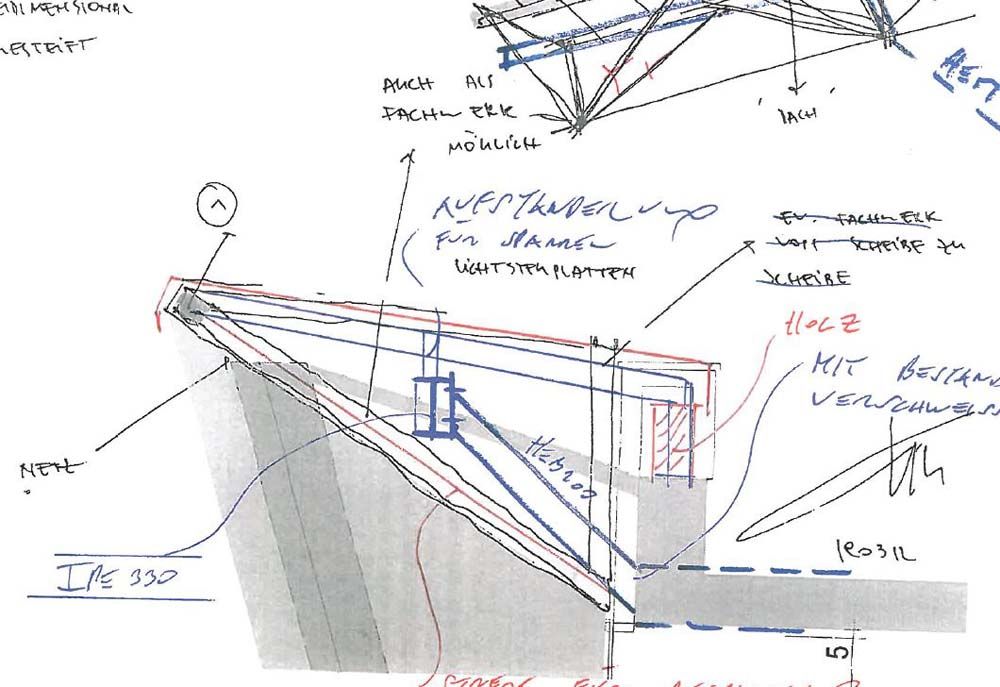 EIDIMENSIONAL
AUCH ALS
FACHWERK
MÖGLICH
'DACH'
AUFSTÄNDERUNG
FÜR SPARREN
LICHTSTEGPLATTEN
EV. FACHWERK
VON SCHEIBE ZU
SCHEIBE
HOLZ
MIT BESTAN
VERSCHWEISS
HEB200
IPE 330
5